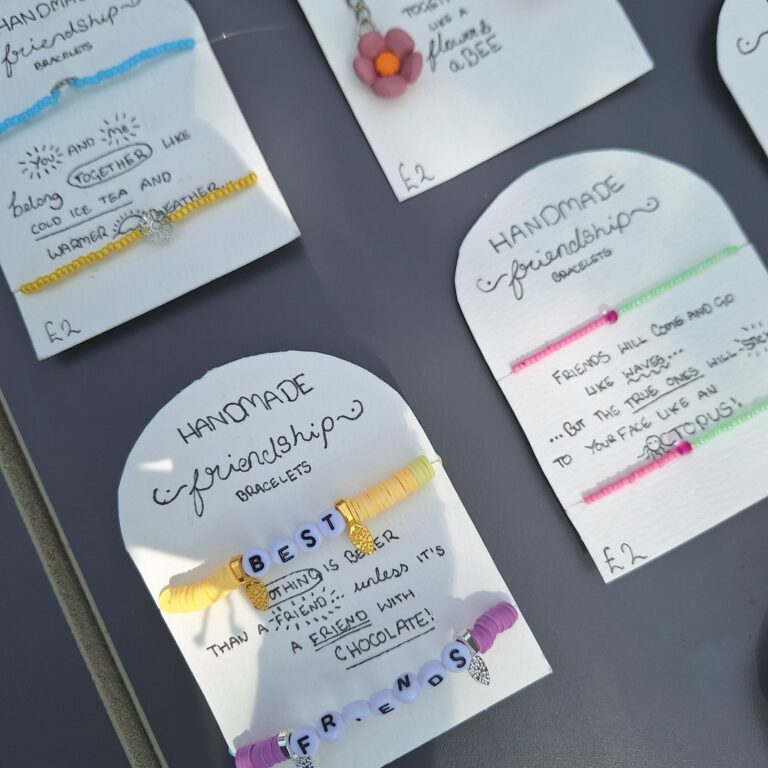 HANDMADE
friendship
BRACELETS
YOU AND Me
belong TOGETHER LIKE
COLD ICE TEA AND
WARMER WEATHER..
£2
LIKE A
flowers
aBEE
£2
HANDMADE
friendship
BRACELETS
FRIENDS WILL COME AND GO
LIKE WAVES...
...BUT THE TRUE ONES WILL STICK
TO YOUR FACE LIKE AN
OCTOPUS!
£2
HANDMADE
friendship
BRACELETS
BEST
IS BETTER
THAN A FRIEND... unless IT'S
A FRIEND WITH
CHOCOLATE!
FRIENDS